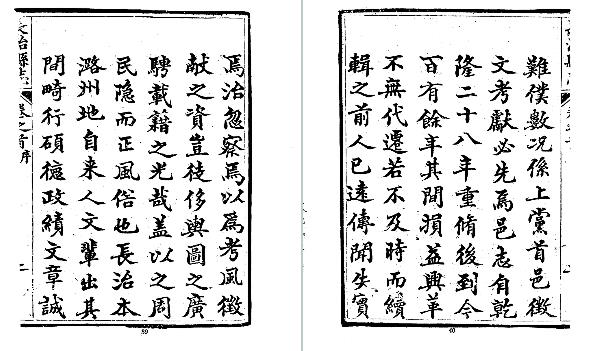 焉治忽察焉以爲考風徵
献之資豈徒侈輿圖之廣
騁載籍之光哉盖以之周
民隐而正風俗也長治本
潞州地自来人文輩出其
間畸行碩德政績文章誠
治縣志
卷之首序
二
難僕數况係上黨首邑徵
文考獻必先焉邑志有乾
隆二十八年重脩後到今
百有餘年其間損益興革
不無代遷若不及時而續
輯之前人已遠傳聞失實